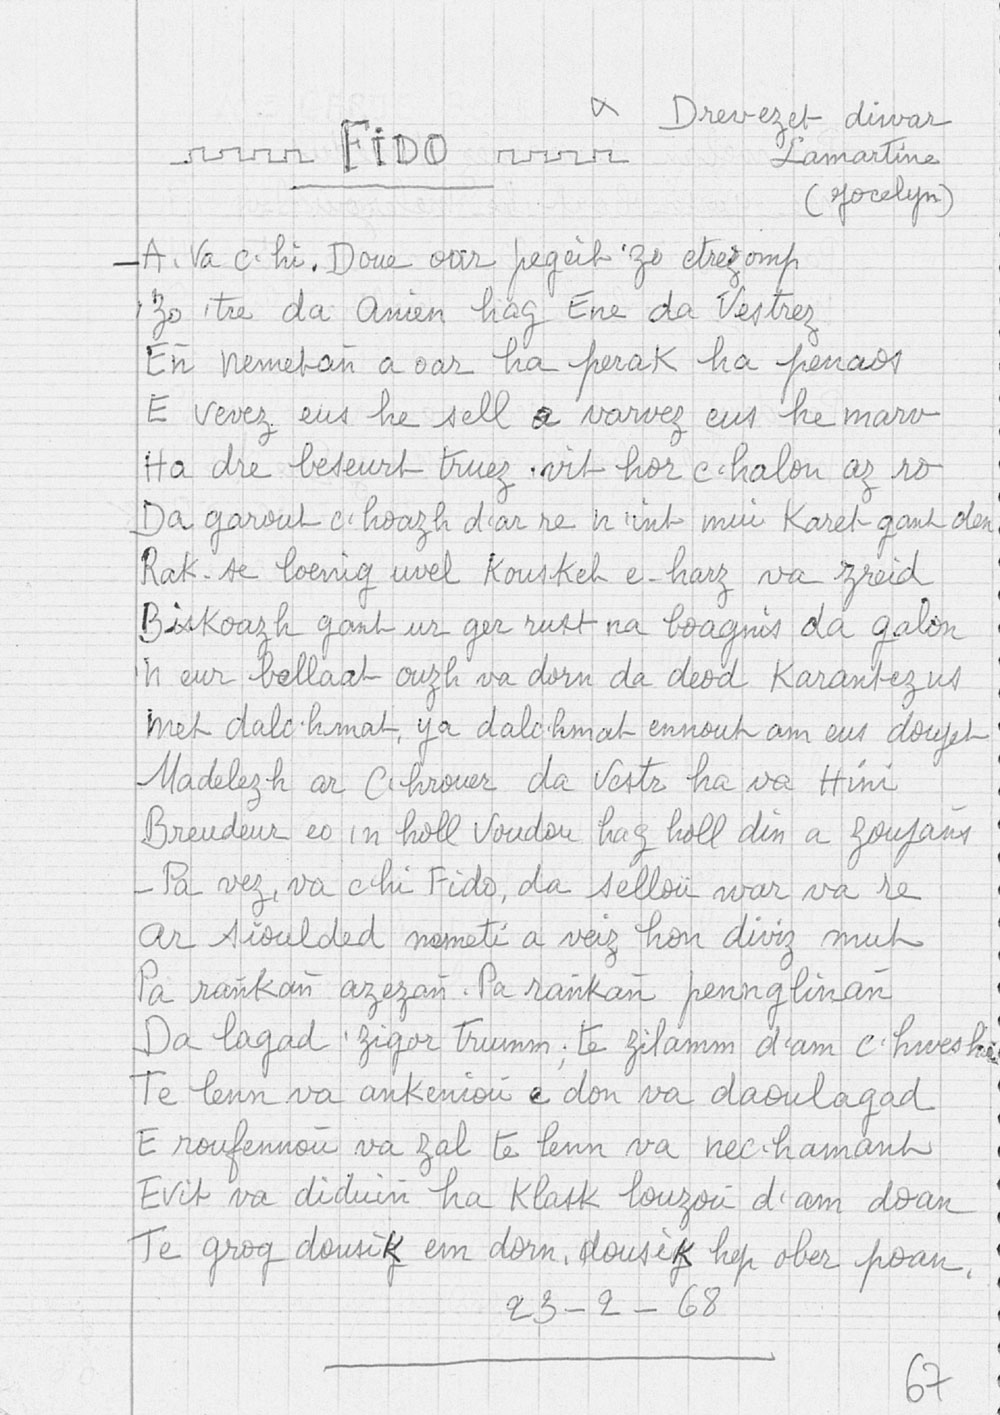 FIDO
Drevezet diwar
Lamartine
(Jocelyn)
– A. Va c'hi. Doue oar pegeit 'zo etrezomp
'Zo 'tre da Anien hag Ene da Vestrez
Eñ nemetañ a oar ha perak ha penaos
E vevez eus he sell e varvez eus he marv
Ha dre beseurt truez 'vit hor c'halon az ro
Da garout c'hoazh d'ar re n'int mui karet gant den
Rak-se loenig uvel kousket e-harz va zreid
Biskoazh gant ur ger rust na loagnis da galon
'N eur bellaat ouzh va dorn da deod karantezus
Met dalc'hmat, ya dalc'hmat ennout am eus doujet
Madelezh ar C'hrouer da Vestr ha va Hini
Breudeur eo in holl voudou hag holl din a zoujañs
– Pa vez, va c'hi Fido, da selloù war va re
Ar sioulded nemeti a veiz hon diviz mut
Pa rañkañ azezañ. Pa rañkañ pennglinañ
Da lagad 'zigor trumm; te zilamm d'am
Te lenn va ankenioù e don va daoulagad
E roufennoù va zal te lenn va nec'hamant
Evit va diduiñ ha klask louzoù d'am doan
Te grog dousik em dorn, dousik hep ober poan.
23-2-68
67